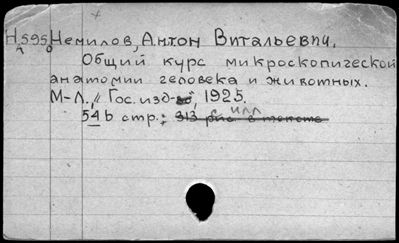 Н595 Немилов, Антон Витальевич.
Общий курс микроскопической
анатомии человека и животных.
М-Л., Гос. изд-во, 1925.
546 стр.; илл
313 рис. в тексте